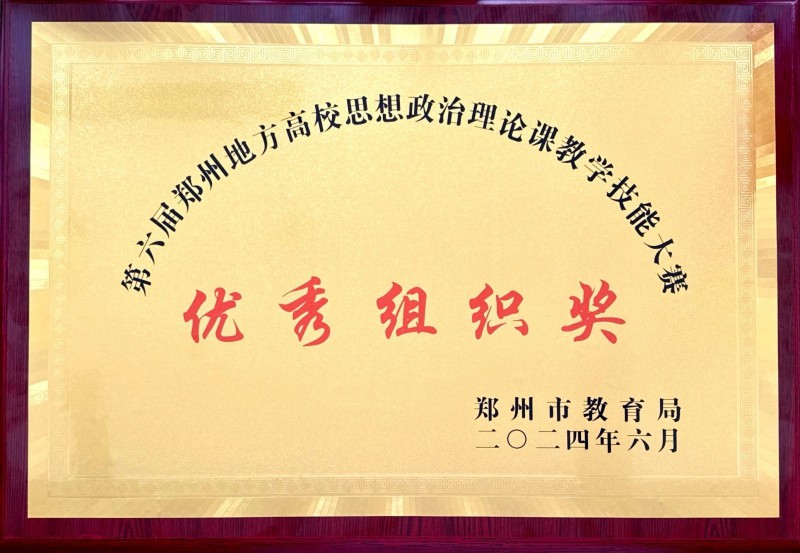 第六届郑州地方高校思想政治理论课教学技能大赛
优秀组织奖
郑州市教育局
二〇二四年六月